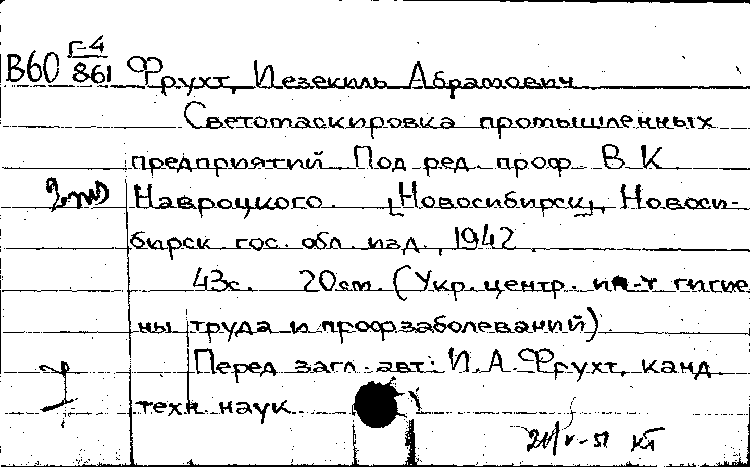 В60 Г-4/861 Фрухт, Иезекиль Абрамович
Светомаскировка промышленных
предприятий. Под ред. проф. В. К.
Навроцкого. [Новосибирск], Новоси-
бирск. гос. обл. изд., 1942.
43с. 20см. (Укр. центр. ин-т гигие
ны труда и профзаболеваний)
Перед загл. авт: И. А. Фрухт, канд.
техн. наук.